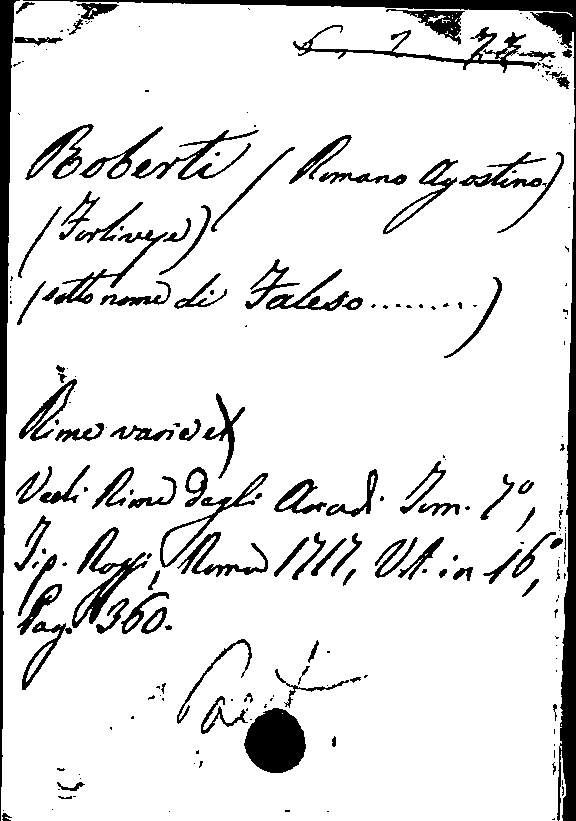 Roberti (Romano Agostino)
(Forlivese)
(sotto nome di Faleso.........)
Rime varie
Vedi Rime degli Arcadi Tom. 7º,
Tip. Rossi, Roma 1717, Vol. in 16º,
Pag. 360.